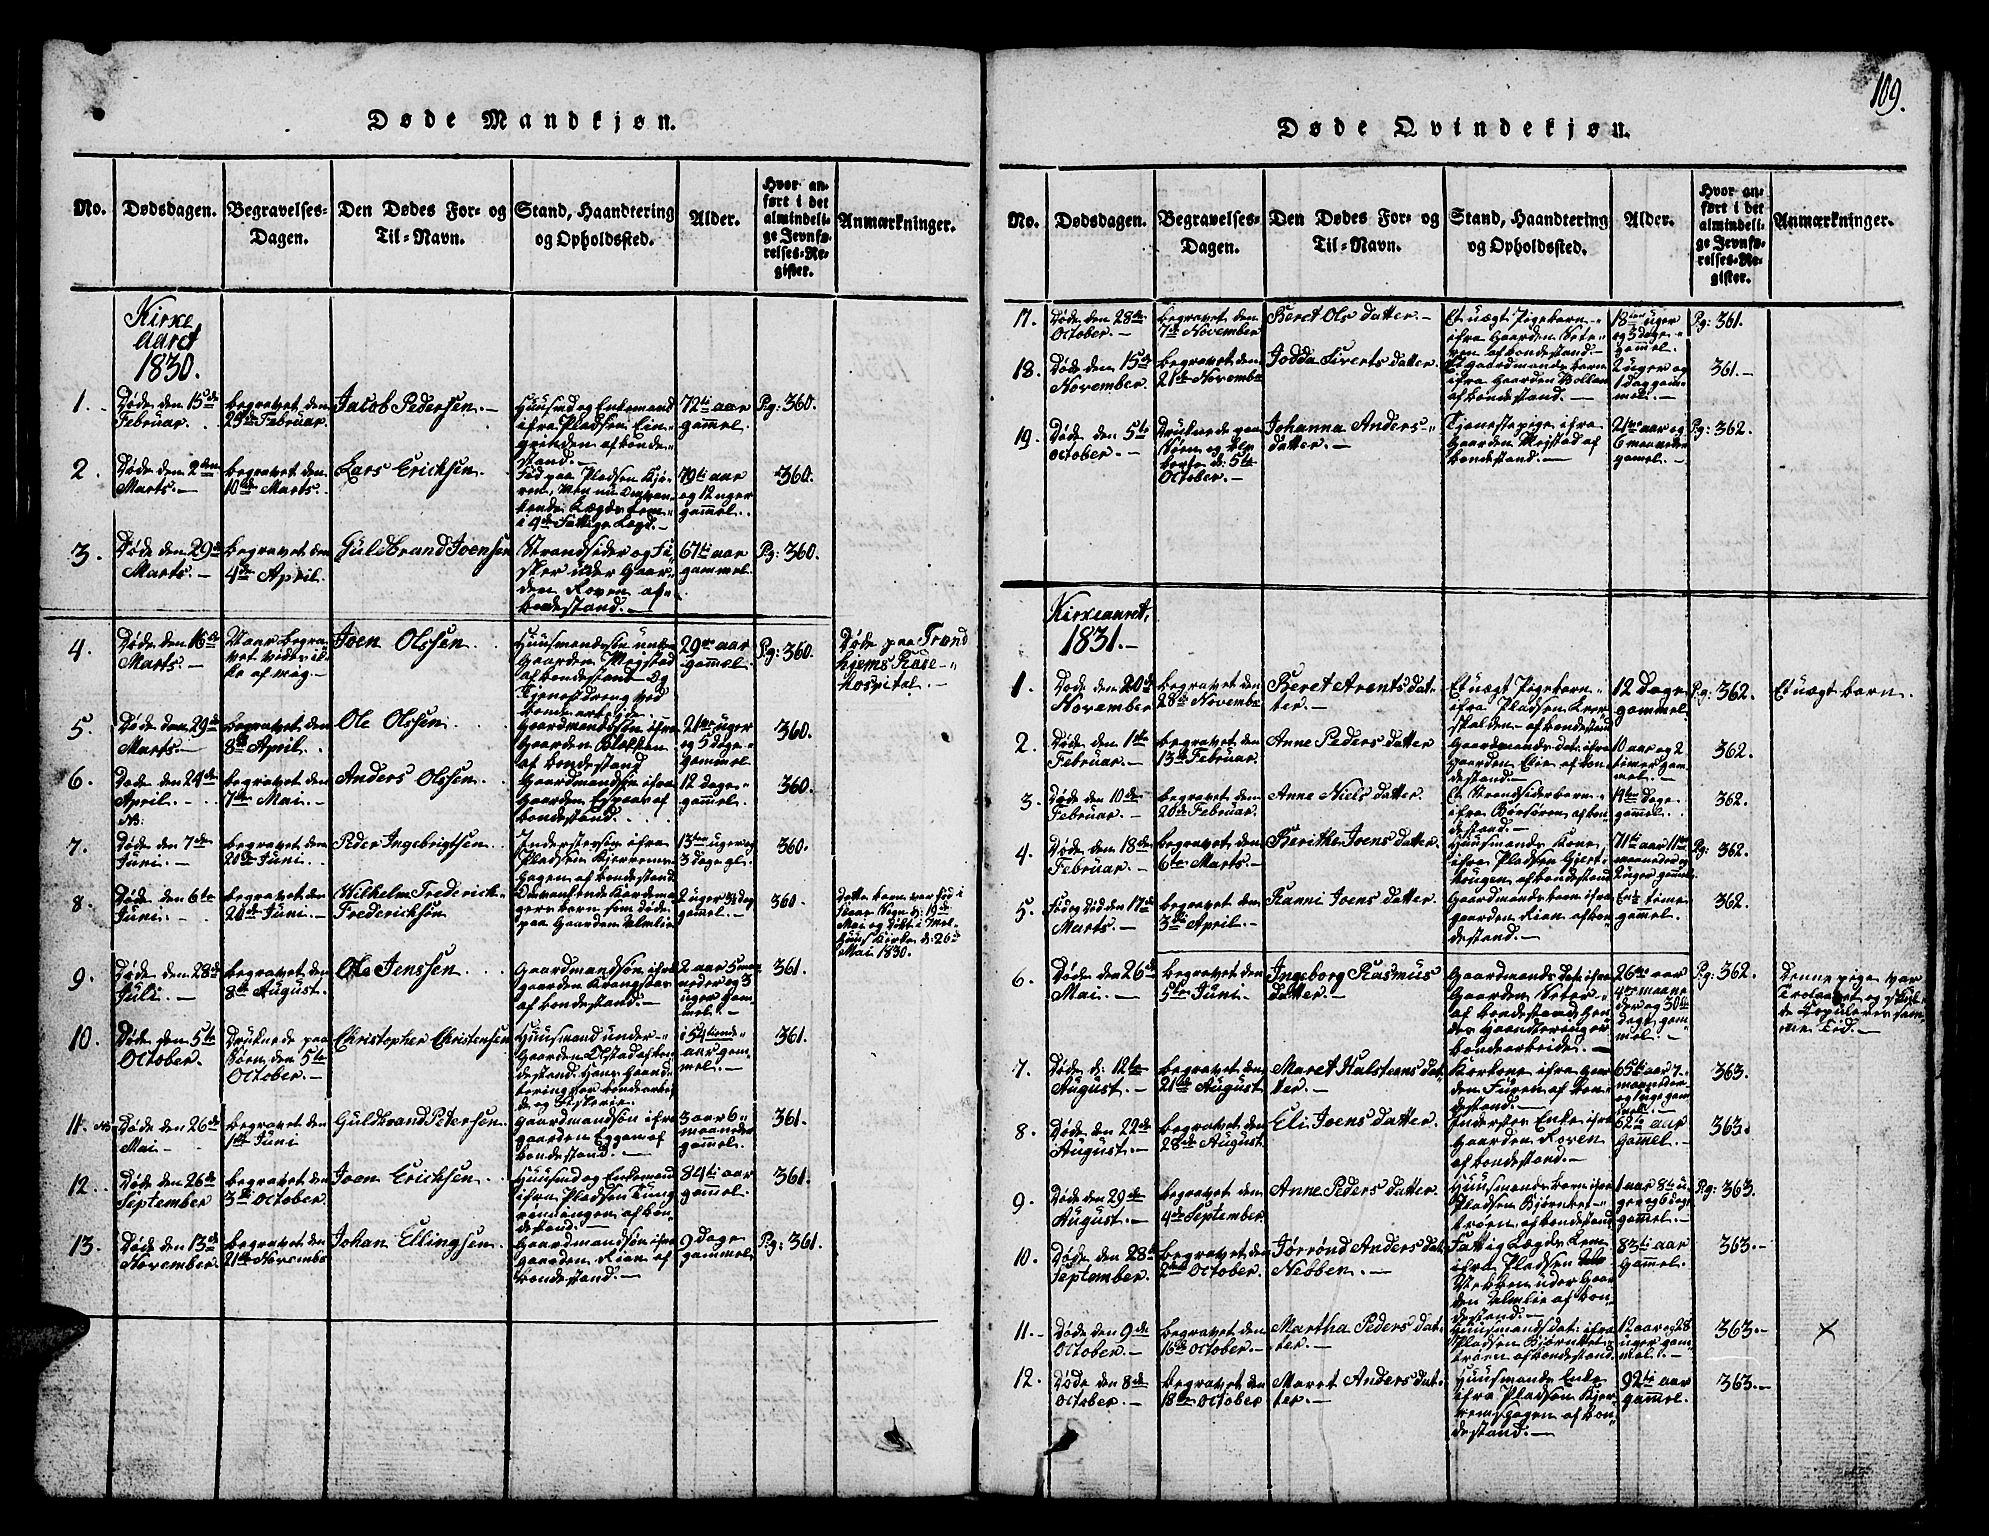 109.
Døde Mandkjøn.
No. Dødsdagen. Begravelses-Dagen. Den Dødes For- og Til-Navn. Stand, Haandtering og Opholdssted. Alder. Hvor anført i det almindelige Jevnførelses-Register. Anmærkninger.
Kirke
Aaret
1830.
1. Døde den 15de Februar. begravet den 25de Februar. Jacob Pedersen. Huusmd og Enkemand ifra Pladsen af bondestand. 72ti aar gammel. Pg: 360.
2. Døde den 2den Marts. begravet den 10de Marts. Lars Erichsen. 79ti aar og 12 uger gammel. 360.
3. Døde den 29de Marts. begravet den 4de April. Guldbrand Joensen Strandsider og Fisker under Gaarden Roven af bondestand. 67ti aar gammel. Pg: 360.
4. Døde den 16de Marts. Joen Olssen Huusmandssøn under Gaarden Mogstad af bondestand og Tjenestdreng ved bondearbeide. 29 aar gammel. Pg: 360. Døde paa Trondhjems Hospital.
5. Døde den 29de Marts begravet den 8de April. Ole Olssen Gaardmandssøn ifra Gaarden af bondestand 21 uger og 5 dage gammel 360.
6. Døde den 24de April. begravet den 7de Mai. Anders Olssen Gaardmandssøn ifra Gaarden af bondestand. 12 dage gammel. 360.
N:
7. Døde den 7de Juni. begravet den 20de Juni. Peder Ingebrigtsen Inderstessøn ifra Pladsen af bondestand 13ten uger og 3 dage gl. 360.
8. Døde den 6te Juni. begravet den 20de Juni. Wilhelm Frederich Frederichsøn paa Gaarden 2 uger gammel. 360. Dette barn var fød i d: 19de Mai og døbt i Melhuus Kirke d: 26de Mai 1830.
9. Døde den 28de Juli. begravet den 8de August. Ole Jenssen Gaardmandssøn ifra Gaarden af bondestand. 2 aar 5 maaneder og 3 uger gammel. 361.
10. Døde den 5te October. Druknede paa Søen den 5te October. Christopher Christensen Huusmand under Gaarden Olstad af bondestand. Hans Haandtering var bondearbeide og Fiskerie. i 54 aar gammel. 361.
11. Døde den 26de Mai begravet den 1ste Juni Guldbrand Petersen Gaardmandssøn ifra Gaarden Eggen af bondestand. 3 aar 6 maaneder gammel. 361.
12. Døde den 26de September begravet den 3de October. Joen Erichsen Huusmd og Enkemand ifra Pladsen af bondestand. 84ti aar gammel. 361.
13. Døde den 13de November. begravet den 21de November Johan Ellingsen Gaardmandssøn ifra Gaarden Rien af bondestand. 9 dage gammel. Pg: 361.
Døde Qvindekjøn.
No. Dødsdagen. Begravelses-Dagen. Den Dødes For- og Til-Navn. Stand, Haandtering og Opholdssted. Alder. Hvor anført i det almindelige Jevnførelses-Register. Anmærkninger.
17. Døde den 28de October. begravet den 7de November Beret Ols datter. Et uægt Pigebarn ifra Gaarden af bondestand. 18ten uger og 3 dage gammel. Pg: 361.
18. Døde den 15de November. begravet den 21de November Et Gaardmands barn ifra Gaarden af bondestand. 2 uger og 1 dag gammel. 361.
19. Døde den 5te October. Druknede paa Søen d: 5te October. Johanna Anders datter. Tjenestepige ifra Gaarden Mogstad af bondestand. 21 aar og 6 maaneder gammel. Pg: 362.
Kirkeaaret,
1831.
1. Døde den 20de November begravet den 28de November Beret Arents datter. Et uægt Pigebarn ifra Pladsen af bondestand 12 dage gammel. Pg: 362. Et uægt barn.
2. Døde den 1ste Februar. begravet den 13de Februar. Anne Peders datter Gaardmands dat: ifra Gaarden af bondestand. 10 aar og 2 timer gammel. 362.
3. Døde den 10de Februar. begravet den 20de Februar. Anne Niels datter. Et Strandsiderbarn ifra Børsøren af bondestand. dage gammel. 362.
4. Døde den 18de Februar. begravet den 6te Marts. Berithe Joens datter. Huusmands Kone ifra Pladsen af bondestand 71ti aar 11 maaneder og 2 uger gammel. Pg: 362.
5. Død den 17de Marts. begravet den 3de April. Ranni Joens datter. Gaardmands barn ifra Gaarden Rien af bondestand. En time gammel. 362.
6. Døde den 26de Mai. begravet den 5te Juni. Ingeborg Rasmus datter. Gaardmands dat: ifra Gaarden af bondestand Hendes Haandtering er bondearbeide. 26 aar 4 maaneder og 30te dage gammel. Pg: 362. Denne pige var Trolovet
7. Døde d: 12te August. begravet den 21de August Maret Halsteens datter. ifra Gaarden af bondestand. 65ti aar 7 maaneder og 1 uge gammel. 363.
8. Døde den 22de August. begravet den 28de August Eli Joens datter Inderstes Enke ifra Gaarden Roven af bondestand. 52 aar gammel. 363.
9. Døde den 29de August. begravet den 4de September Anne Peders datter. Huusmands barn ifra Pladsen af bondestand 1 aar 8 uger og 6 dage gammel. Pg: 363.
10. Døde den 28de September. begravet den 2den October. Anders dat: Nebben. Fattig Lægds Lem ifra Pladsen Nebben under Gaarden af bondestand. 83ti aar gammel. 363.
11. Døde den 9de October. begravet den 16de October. Martha Peders datter. Huusmands dat: ifra Pladsen af bondestand. 12 aar og 28 uger gammel. 363. X
12. Døde den 8de October. begravet den 18de October Maret Anders datter. Huusmands Enke ifra Pladsen af bondestand. 92ti aar gammel. 363.